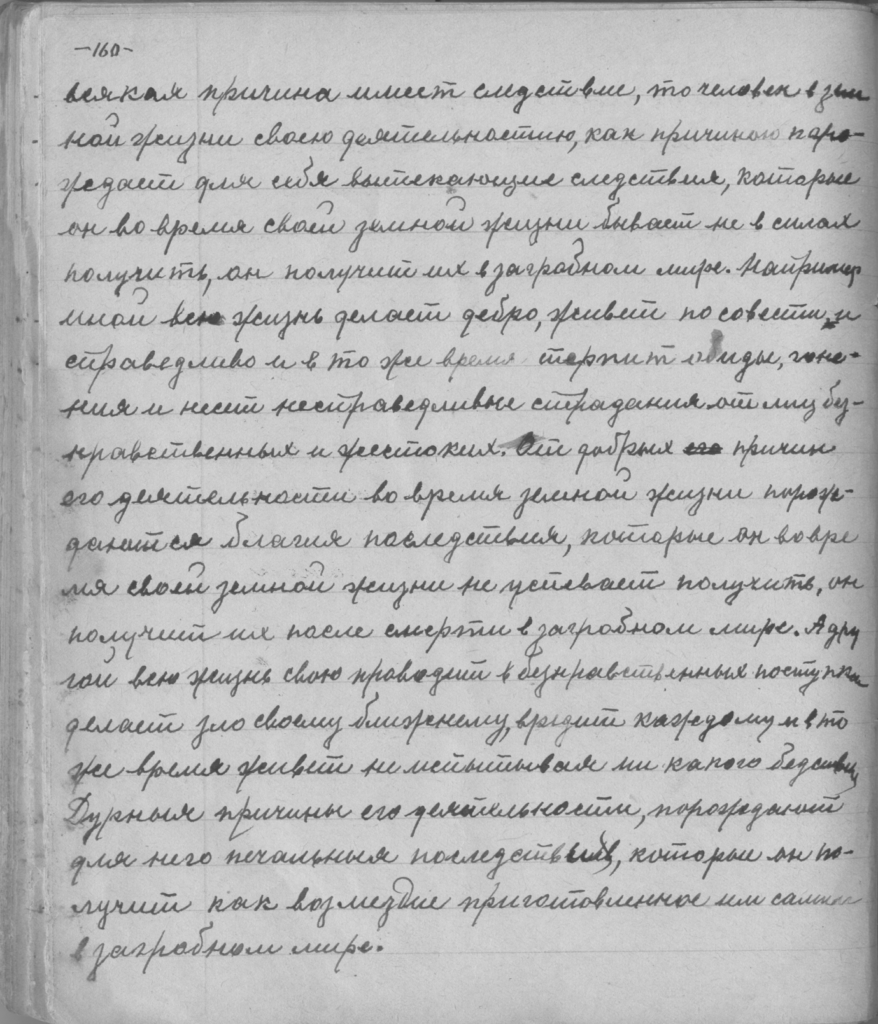 -160-
всякая причина имеет следствие, то человек в зем
ной жизни своею деятельностию, как причиною поро-
ждает для себя вытекающие следствия, которые
он во время своей земной жизни бывает не в силах
получить, он получит их в загробном мире. Например
иной всю жизнь делает добро, живет по совести и
справедливо и в то же время терпит обиды, гоне-
ния и несет несправедливые страдания от лиц без-
нравственных и жестоких. От добрых его причин
его деятельности во время земной жизни порож-
даются благия последствия, которые он во вре
мя своей земной жизни не успевает получить, он
получит их после смерти в загробном мире. А дру
гой всю жизнь свою проводит в безнравственных поступках
делает зло своему ближнему, вредит каждому и в то
же время живет не испытывая ни какого бедствия
Дурныя причины его деятельности, порождают
для него печальныя последствия, которые он по-
лучит как возмездие приготовленное им самим
в загробном мире.